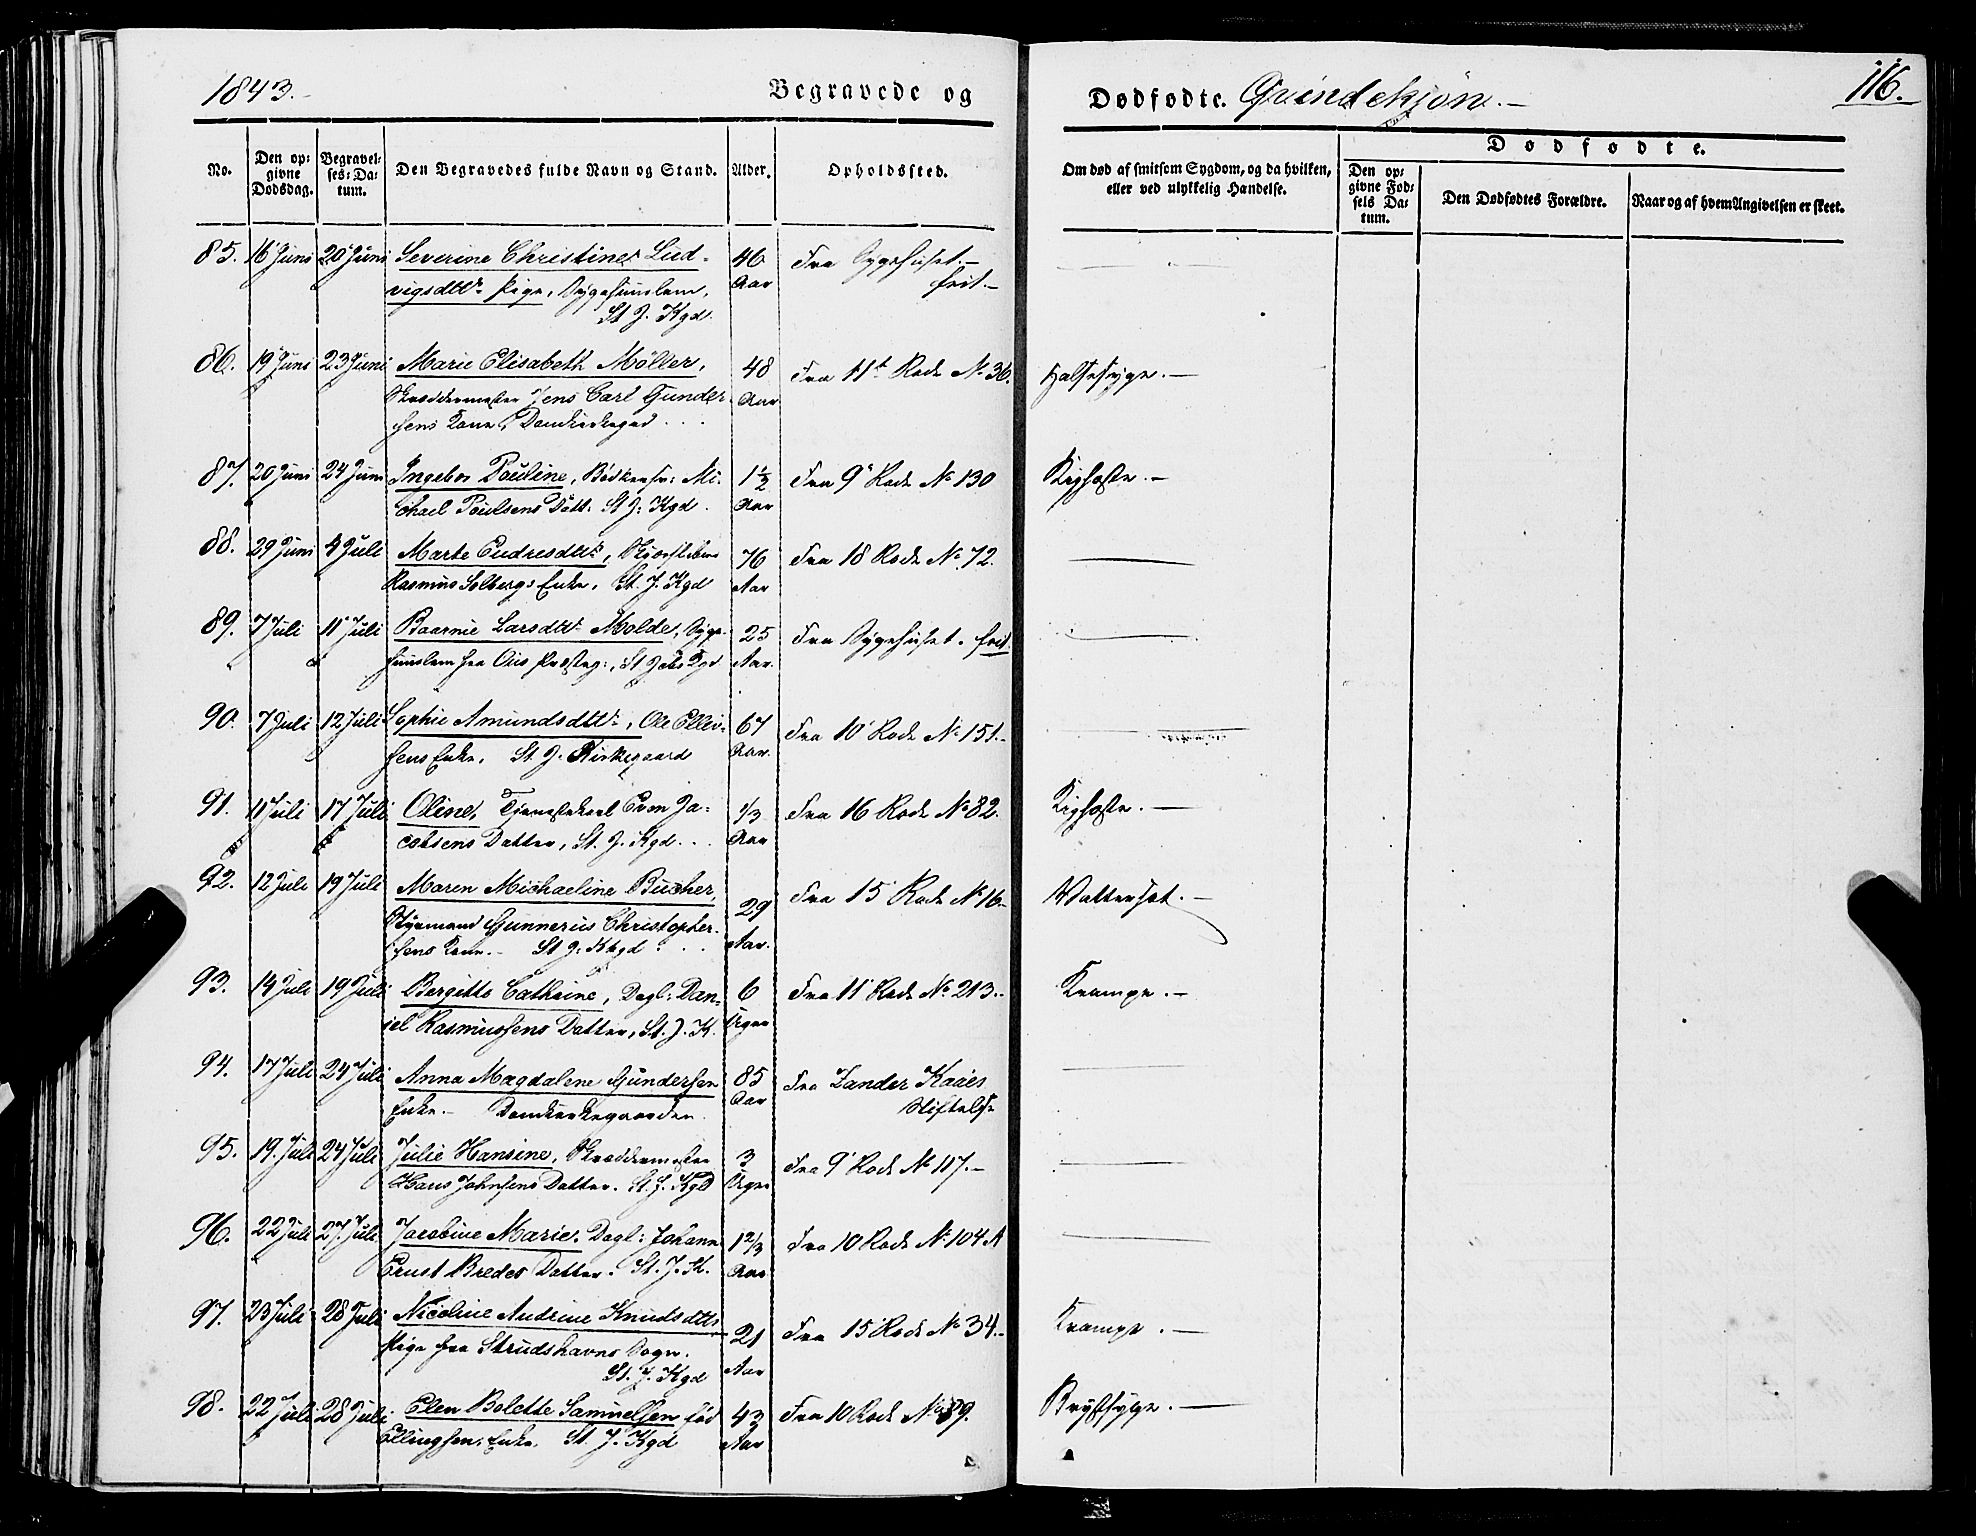 1843.
Begravede og
Dødfødte. Qvindekjøn.
116.
No.
Den opgivne Dødsdag.
Begravelses-Datum.
Den Begravedes fulde Navn og Stand.
Alder.
Opholdssted.
Om død af smitsom Sygdom, og da hvilken, eller ved ulykkelig Hændelse.
Dødfødte.
Den opgivne Fødsels Datum.
Den Dødfødtes Forældre.
Naar og af hvem Angivelsen er skeet.
85. 16 Juni 20 Juni Severine Christine Lud- 46 Fra Sygehuset.
vigsdttr Pige, Sygehuuslem, Aar frit.
St. J. Kgd.
86. 19 Juni 23 Juni Marie Elisabeth Möller, 48 Fra 11t Rode No 36. Halssyge.
Skræddermester Jens Carl Gunder- Aar
sens Kone, Domkirkegd
87. 20 Juni 24 Juni Ingebor Pouline, Bødkersv: Mi- 1½ Fra 9 Rode No 130 Kighoste.
chael Poulsens Datt. St. J. Kgd. Aar
88. 29 Juni 4 Juli Marte Endresdttr, 76 Fra 18 Rode No 72.
Rasmus Solbergs Enke, St. J. Kgd Aar
89. 7 Juli 11 Juli Baarnie Larsdttr Molde, Syge- 25 Fra Sygehuset. frit.
huuslem fra Ous Præsteg:, St. J. Kgd Aar
90. 7 Juli 12 Juli Sophie Amundsdttr, Ole Elling- 67 Fra 10 Rode No 151.
sens Enke, St. J. Kirkegaard Aar.
91. 11 Juli 17 Juli Oline, Tjenestekarl Even Ja- 1/3 Fra 16 Rode No 82. Kighoste.
cobsens Datter, St. J. Kgd. Aar
92. 12 Juli 19 Juli Maren Michaeline Bucher, 29 Fra 15 Rode No 16. Vattersot.
Styrmand Gunnerius Christopher- Aar.
sens Kone. St J. Kkgd.
93. 14 Juli 19 Juli Bergitte Cathrine, Dagl: Dan- 6 Fra 11 Rode No 213. Krampe.
iel Rasmussens Datter, St. J. K. Uger
94. 17 Juli 24 Juli Anna Magdalene Gundersen 85 Fra Zander Kaaes
Enke. Domkirkegaarden. Aar Stiftelse
95. 19. Juli 24 Juli Julie Hansine, Skræddermester 3 Fra 9 Rode No 117.
Hans Johnsens Datter. St. J. Kgd Uger
96. 22 Juli 27. Juli Jacobine Marie. Dagl: Johann 1 2/3 Fra 10 Rode No 104 A
Ernst Bredes Datter. St. J. K. Aar
97. 23 Juli 28 Juli Nicoline Andrine Knudsdttr 21 Fra 15 Rode No 34. Krampe.
Pige fra Strudshavns Sogn. Aar
St. J. Kgd
98. 22 Juli 28 Juli Elen Bolette Samuelsen fød 43 Fra 10 Rode No 89. Brystsyge.
Ellingsen, Enke. St. J. Kgd Aar